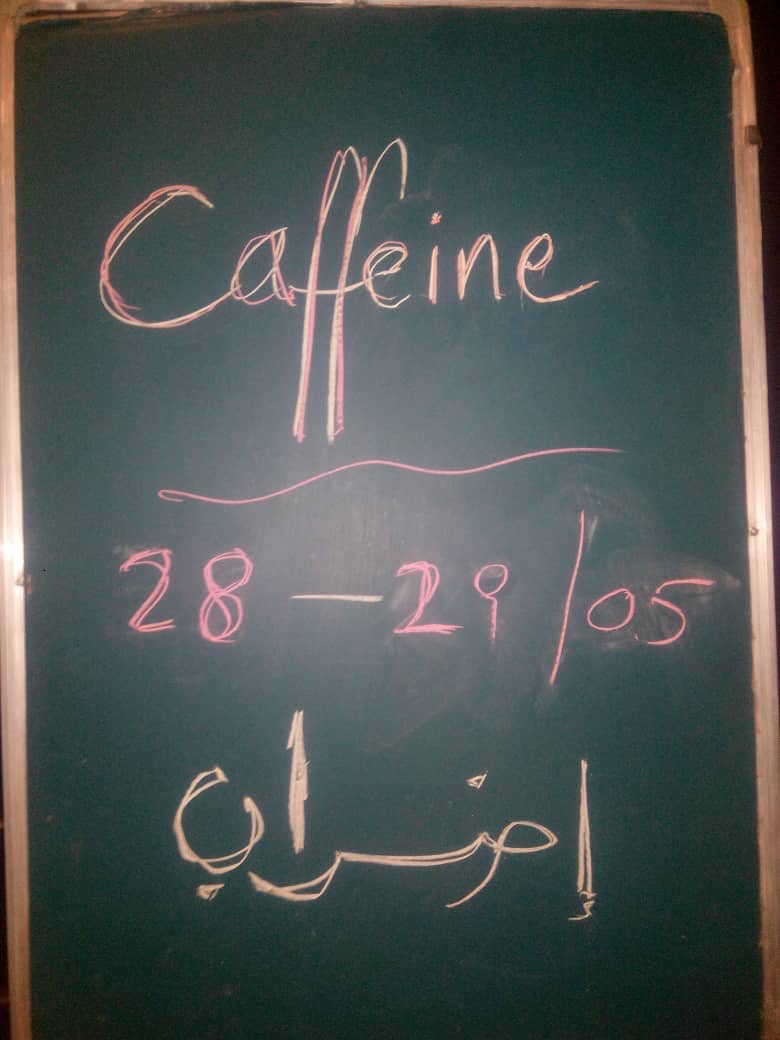 Caffeine
28 – 29/05
إضراب